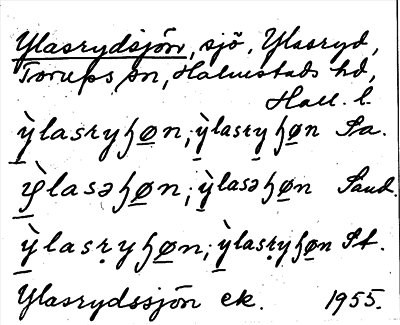 Ylasrydsjön, sjö, Ylasryd,
Torups sn, Halmstads hd,
Hall. l.
ỳ̲lasryɧø̲n; ỳ̲lasry̲ɧø̲n Sa.
ỳ̲lasəɧø̲n; ỳ̲lasəɧø̲n Sand.
ỳ̲lasṛyɧø̲n; ỳ̲lasṛyɧø̲n St.
Ylasrydssjön ek. 1955.